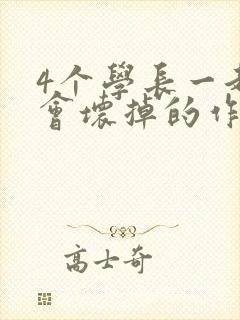 4个學長一
會壞掉的作
高士奇